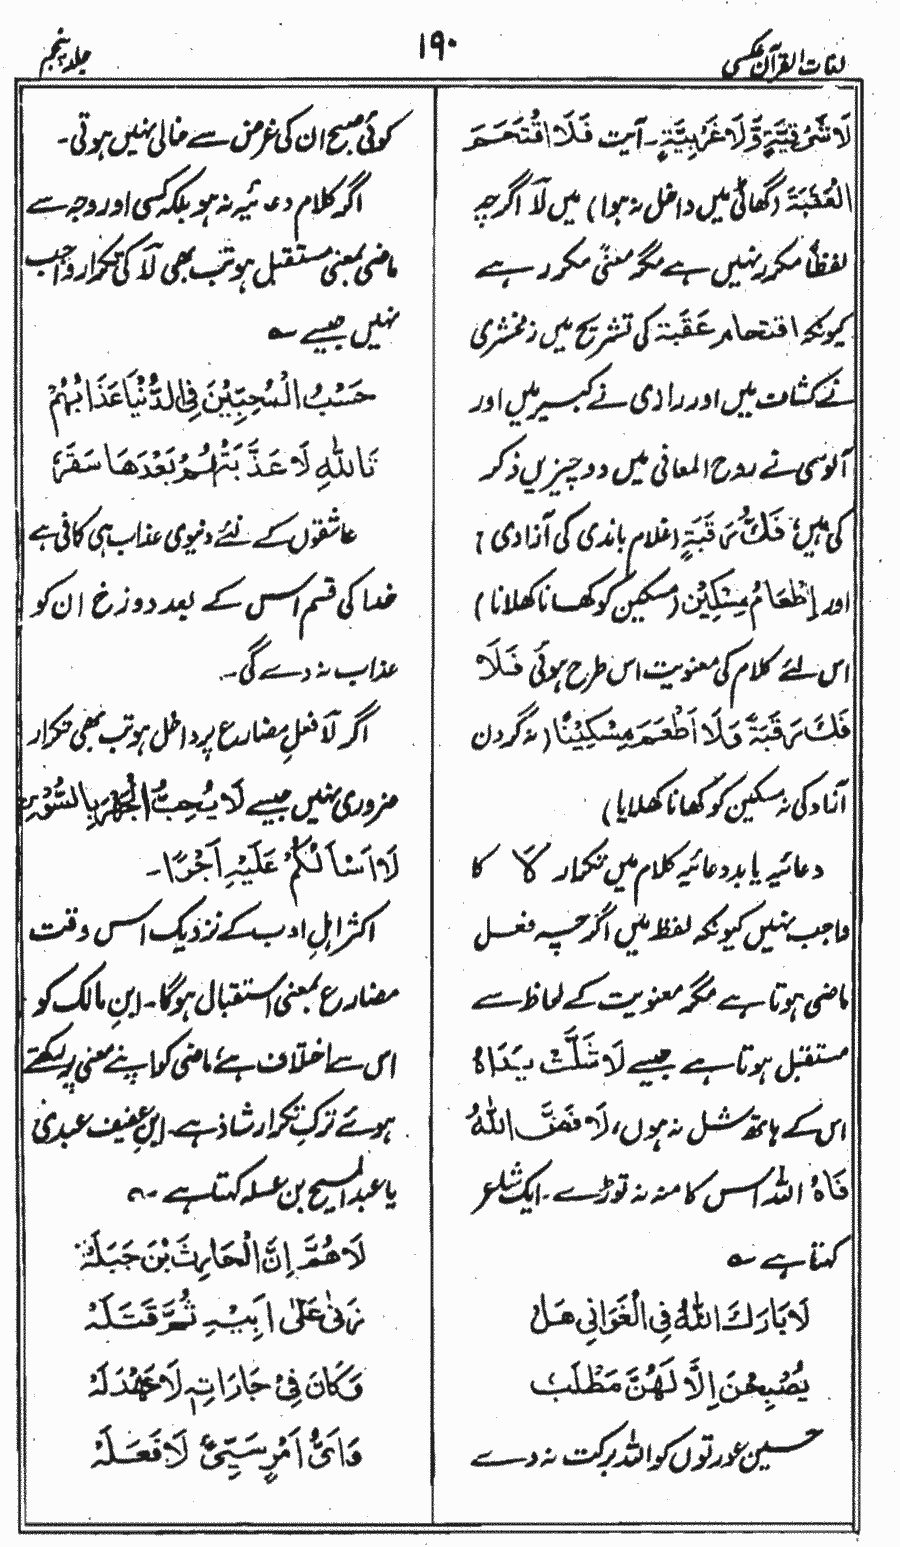 لغات القرآن عکسی
۱۹۰
جلد پنجم
لَا شَرْقِيَّةٍ وَّلَا غَرْبِيَّةٍ۔ آیت فَلَا اقْتَحَمَ
الْعَقَبَةَ (گھاٹی میں داخل نہ ہوا) میں لَا اگرچہ
لفظاً مکرر نہیں ہے مگر معنیً مکرر ہے
کیونکہ اقتحام عَقَبَة کی تشریح میں زمخشری
نے کشاف میں اور رازی نے کبیر میں اور
آلوسی نے روح المعانی میں دو چیزیں ذکر
کی ہیں، فَكُّ رَقَبَةٍ (غلام باندی کی آزادی)
اور اِطْعَامُ مِسْكِيْنٍ (مسکین کو کھانا کھلانا)
اس لئے کلام کی معنویت اس طرح ہوئی فَلَا
فَكَّ رَقَبَةً وَلَا اَطْعَمَ مِسْكِيْنًا (نہ گردن
آزاد کی نہ مسکین کو کھانا کھلایا)
دعائیہ یا بددعائیہ کلام میں تکرار لَا کا
واجب نہیں کیونکہ لفظ میں اگرچہ فعل
ماضی ہوتا ہے مگر معنویت کے لحاظ سے
مستقبل ہوتا ہے جیسے لَا شَلَّتْ يَدَاهُ
اس کے ہاتھ شل نہ ہوں، لَا فَضَّ اللّٰهُ
فَاهُ اللہ اس کا منہ نہ توڑے۔ ایک شاعر
کہتا ہے ؎
لَا بَارَكَ اللّٰهُ فِي الْغَوَانِي هَلْ
يُصْبِحْنَ اِلَّا لَهُنَّ مَطْلَبُ
حسین عورتوں کو اللہ برکت نہ دے
کوئی صبح ان کی غرض سے خالی نہیں ہوتی۔
اگر کلام دعائیہ نہ ہو بلکہ کسی اور وجہ سے
ماضی بمعنی مستقبل ہو تب بھی لَا کی تکرار واجب
نہیں جیسے ؎
حَسْبُ الْمُحِبِّيْنَ فِي الدُّنْيَا عَذَابُهُمْ
تَاللّٰهِ لَا عَذَّبَتْهُمْ بَعْدَهَا سَقَرُ
عاشقوں کے لئے دنیوی عذاب ہی کافی ہے
خدا کی قسم اس کے بعد دوزخ ان کو
عذاب نہ دے گی۔
اگر لَا فعلِ مضارع پر داخل ہو تب بھی تکرار
ضروری نہیں جیسے لَا يُحِبُّ الْجَهْرَ بِالسُّوْءِ
لَا اَسْاَلُكُمْ عَلَيْهِ اَجْرًا۔
اکثر اہلِ ادب کے نزدیک اس وقت
مضارع بمعنی استقبال ہوگا۔ ابنِ مالک کو
اس سے اختلاف ہے، ماضی کو اپنے معنی پر رکھتے
ہوئے ترکِ تکرار شاذ ہے۔ ابنِ عفیف عبدی
یا عبد المسیح بن عسلہ کہتا ہے ؎
لَاهُمَّ اِنَّ الْحَارِثَ بْنَ جَبَلَهْ
زَنٰى عَلٰى اَبِيْهِ ثُمَّ قَتَلَهْ
وَكَانَ فِيْ جَارَاتِهٖ لَا عَهْدَ لَهْ
وَاَيُّ اَمْرٍ سَيِّئٍ لَا فَعَلَهْ